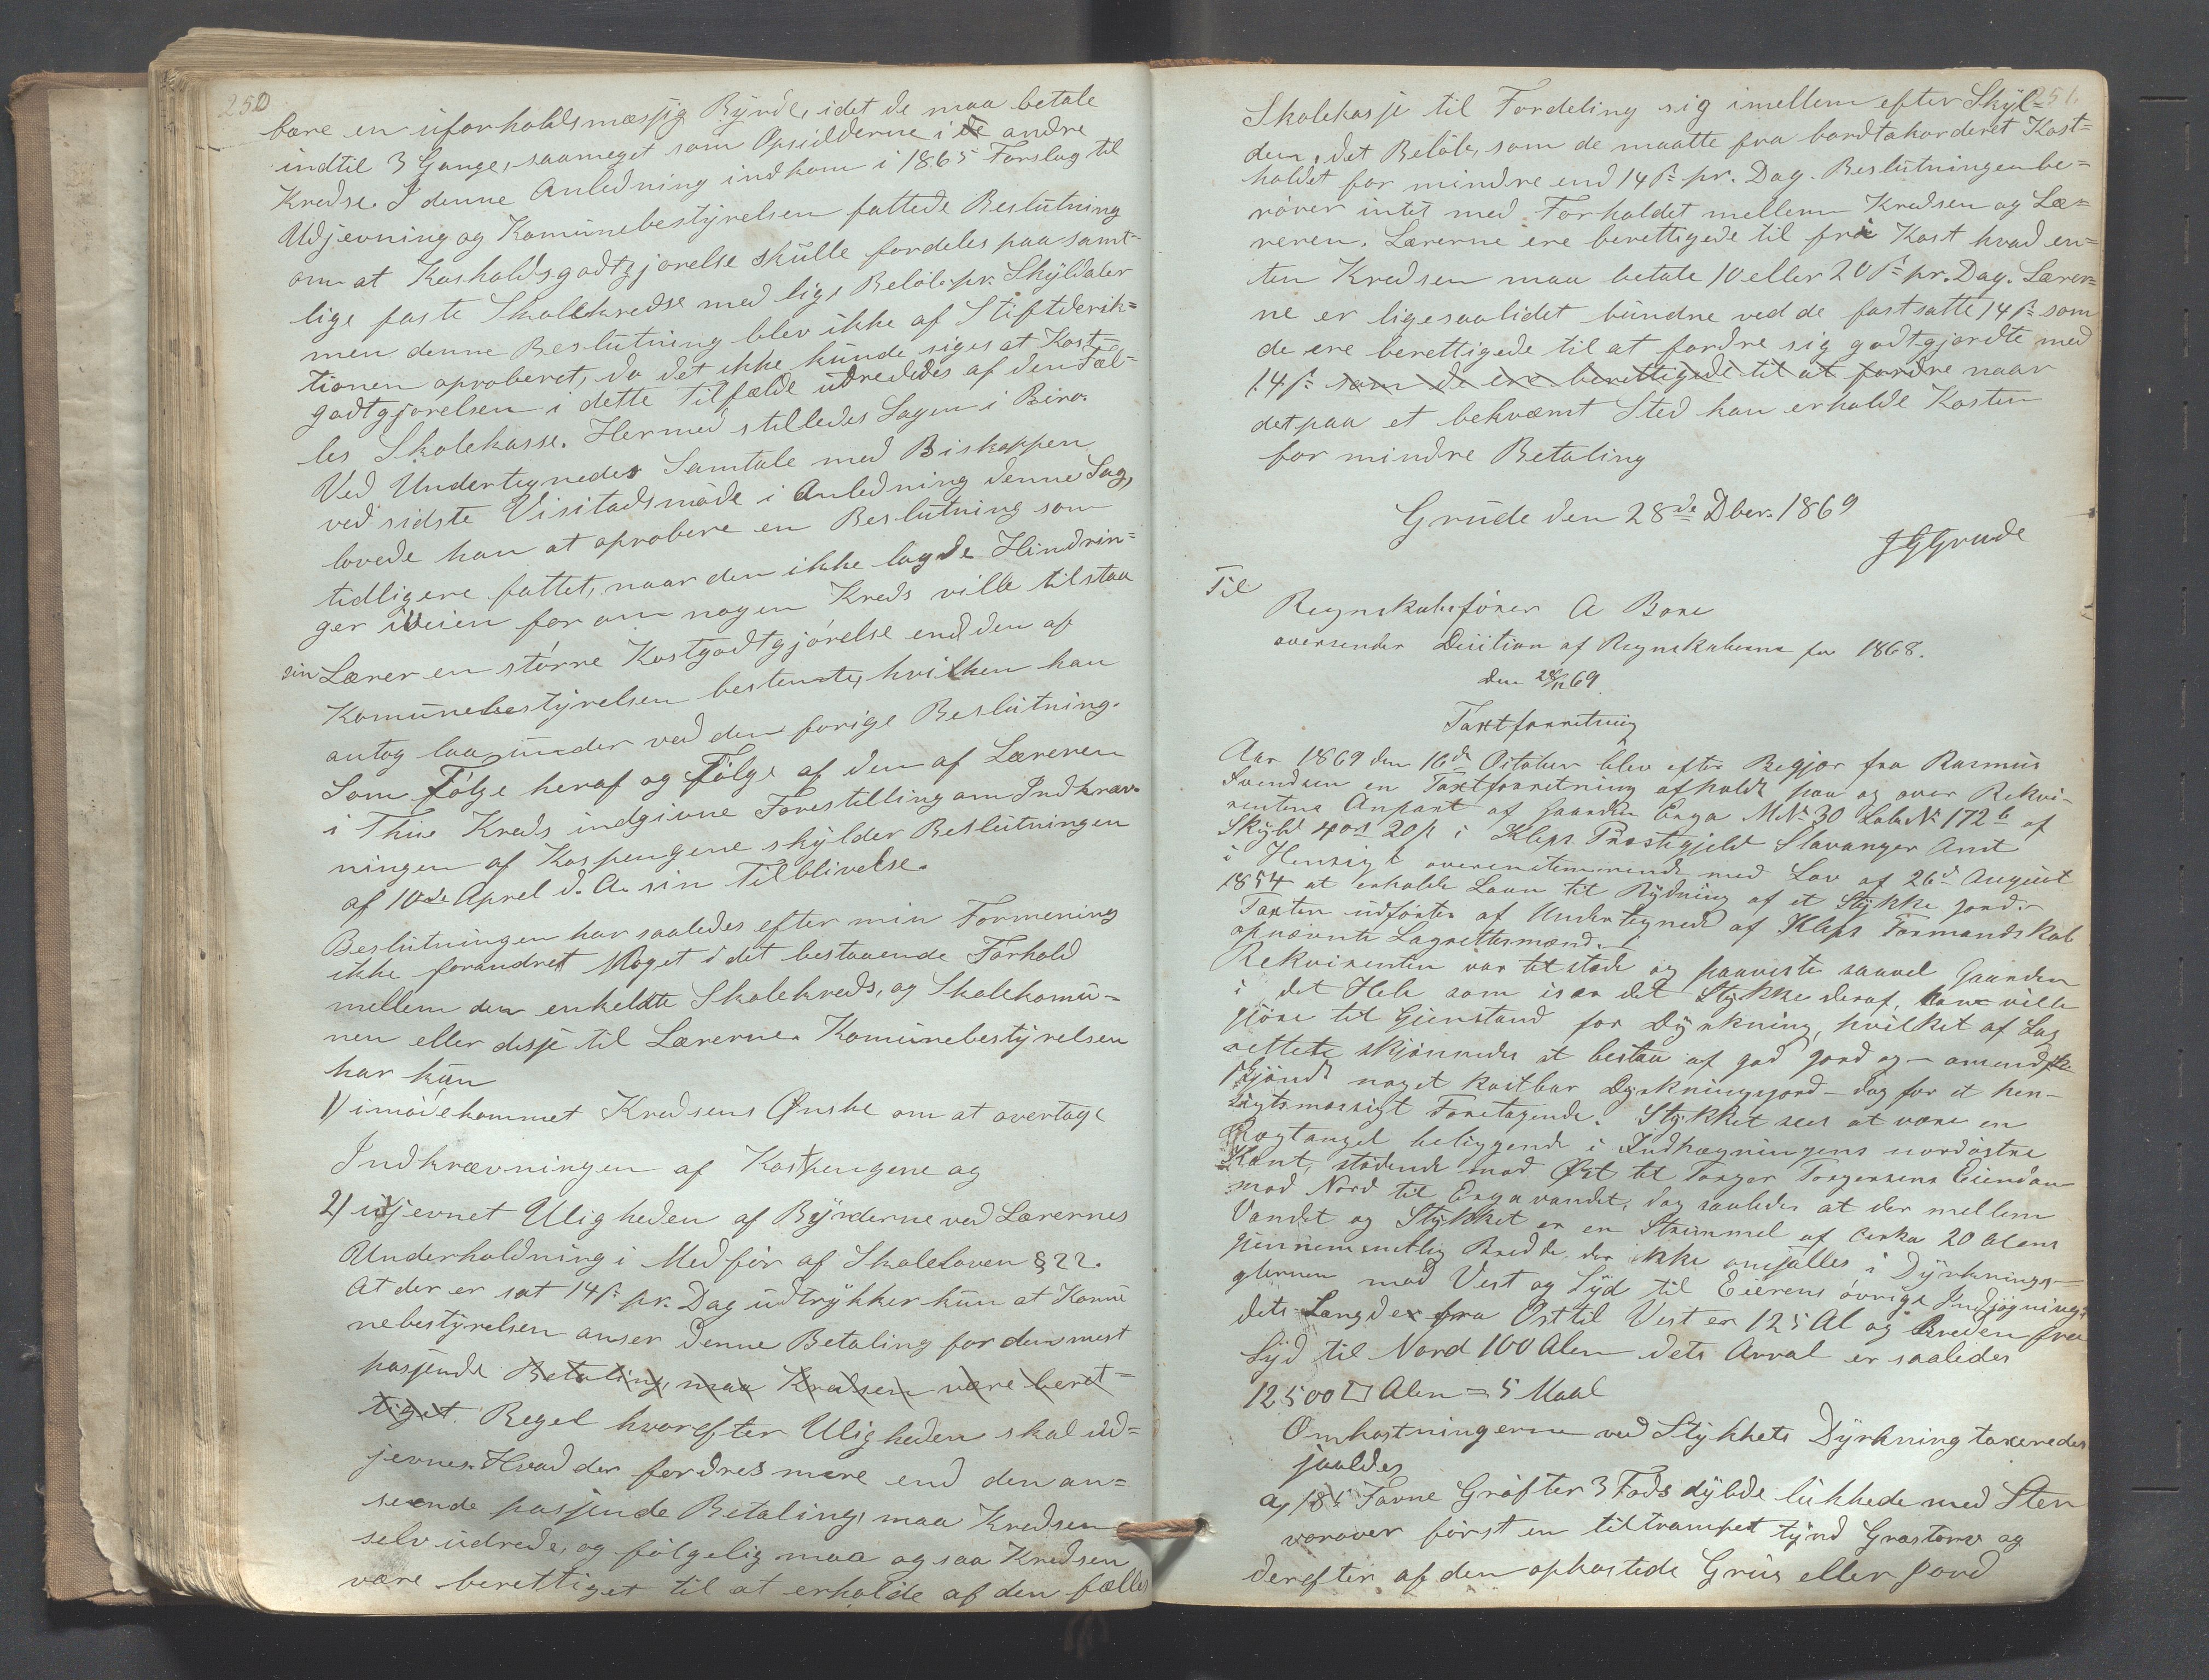 250
bære en uforholdsmæssig Byrde, idet de maa betale
indtil 3 Gange, saameget som Opsidderne i de andre
Kredse. I denne Anledning indkom i 1865 Forslag til
Udjevning og Komunebestyrelsen fattede Beslutning
om at Kosholdsgodtgjorelse skulle fordeles paa samt-
lige faste Skolekredse med lige Beløb pr. Skyldaler
men denne Beslutning blev ikke af Stiftderik-
tionen aproberet, da det ikke kunde siges at Kost-
godtgjorelsen i dette Tilfælde udrededes af den Fæl-
les Skolekasse. Hermed stilledes Sagen i Bero.
Ved Undertegnedes Samtale med Biskoppen
ved sidste Visitadsmøde i Anledning denne Sag,
lovede han at aprobere en Beslutning som
tidligere fattet, naar den ikke lagde Hindrin-
ger i Veien for om nogen Kreds ville tilstaa
sin Lærer en større Kostgodtgjørelse end den af
Komunebestyrelsen bestemte, hvilken han
antog laa under ved den forige Beslutning.
Som Følge heraf og Følge af den af Læreren
i Thue Kreds indgivne Forestilling om Indkræv-
ningen af Kospengene skylder Beslutningen
af 10de Aprel d. A. sin Tilblivelse.
Beslutningen har saaledes efter min Formening
ikke forandret Noget i det bestaaende Forhold
mellem den enkeldte Skolekreds, og Skolekomu-
nen eller disse til Lærerne. Komunebestyrelsen
har kun
1) imødekommet Kredsens Ønske om at overtage
Indkrævningen af Kostpengene og
2) udjevnet Uligheden af Byrderne ved Lærernes
Underholdning i Medfør af Skoleloven § 22.
At der er sat 14 s. pr. Dag udtrykker kun at Komu
nebestyrelsen anser denne Betaling for den mest
passende Betaling, maa Kredsen være beret-
tiget. Regel hvorefter Uligheden skal ud-
jevnes. Hvad der fordres mere end den an-
seende passende Betaling, maa Kredsen
selv udrede, og følgelig maa og saa Kredsen
være berettiget til at erholde af den fælles
251.
Skolekasse til Fordeling sig imellem efter Skyl-
den, det Beløb, som de maatte faa bortakorderet Kost-
holdet for mindre end 14 s. pr. Dag. Beslutningen be-
rører intet med Forholdet mellem Kredsen og Læ-
reren. Lærerne ere berettigede til fri Kost hvad en-
ten Kredsen maa betale 10 eller 20 s. pr. Dag. Lærer-
ne er ligesaalidet bundne ved de fastsatte 14 s. som
de ere berettigede til at fordre sig godtgjordte med
14 s. som de ere berettigede til at fordre naar
det paa et bekvæmt Sted kan erholde Kosten
for mindre Betaling
Grude den 28de Dber. 1869
J G Grude
Til
Regnskabsfører A Bore
oversender Desition af Regnskaberne for 1868.
den 28/12 69.
Taxtforretning
Aar 1869 den 16de October blev efter Begjær fra Rasmus
Svendsen en Taxtforretning afholdt paa og over Rekvi-
rentens Anpart af Gaarden Erga M No 30 Lob No 172 b af
Skyld 4 ort 20 s i Kleps Præstegjeld Stavanger Amt
i Hensigt overensstemmende med Lov af 26de August
1854 at erholde Laan til Rydning af et Stykke Jord.
Taxten udførtes af Undertegnede af Kleps Formandskab
opnævnte Lagrettesmænd.
Rekvirenten var tilstede og paaviste saavel Gaarden
i det Hele som især det Stykke deraf, han vilde
gjøre til Gjenstand for Dyrkning, hvilket af Lag
rettete skjønnedes at bestaa af god Jord og - omend
skjøndt noget kostbar Dyrkningsjord - dog for et hen-
sigtsmæssigt Foretagende. Stykket sees at være en
Rægtangel beliggende i Indhægningens nordøstre
Kant, stødende mod Øst til Torger Torgersens Eiendom
mod Nord til Ergavandet, dog saaledes at der mellem
Vandet og Stykket er en Strimmel af cirka 20 Alens
gjennemsnitlig Bredde der ikke omfattes i Dyrknings-
mod Vest og Syd til Eierens øvrige
dets Længde fra Øst til Vest er 125 Al og Breden fra
Syd til Nord 100 Alen dets Arral er saaledes
12500 □ Alen = 5 Maal
Omkostningerne ved Stykkets Dyrkning taxeredes
saaledes
a, 185 Favne Grøfter 3 Fods dybde lukkede med Sten
vorover først en tiltrampet tynd Grastorv og
derefter af den opkastede Grus eller Jord